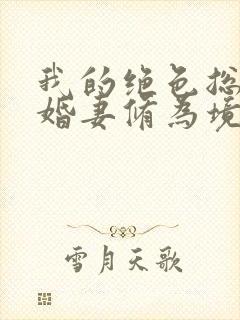 我的绝色总
婚妻脩为境
雪月天歌